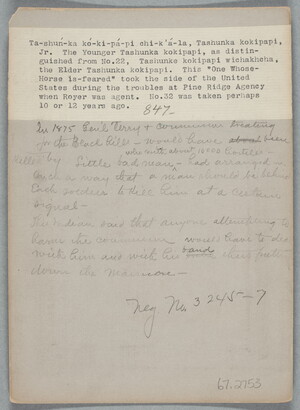 Ta-shuń-ka kó-ki-pá-pi chi-k'á-la, Tashunka kokipapi,
Jr. The Younger Tashunka kokipapi, as distin-
guished from No.22, Tashunke kokipapi wichakheha,
the Elder Tashunka Kokipapi. This "One Whose-
Horse is-feared" took the side of the United
States during the troubles at Pine Ridge Agency
when Royer was agent. No.32 was taken perhaps
10 or 12 years ago.
847-
In 1875 Terry & treating
for the Black Hills - would have been
who with about
killed by Little Bad man - had arranged in
such a way that a man should be behind
Each soldier to kill him at a certain
signal -
said that anyone attempting to
harm the would have to deal
with him and with his band
down the
Neg No 3245-7
67,2753